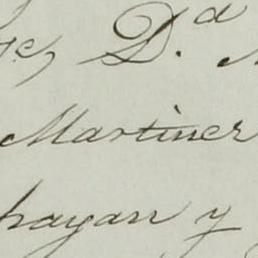 te, D.ª
Martiner
hayan y